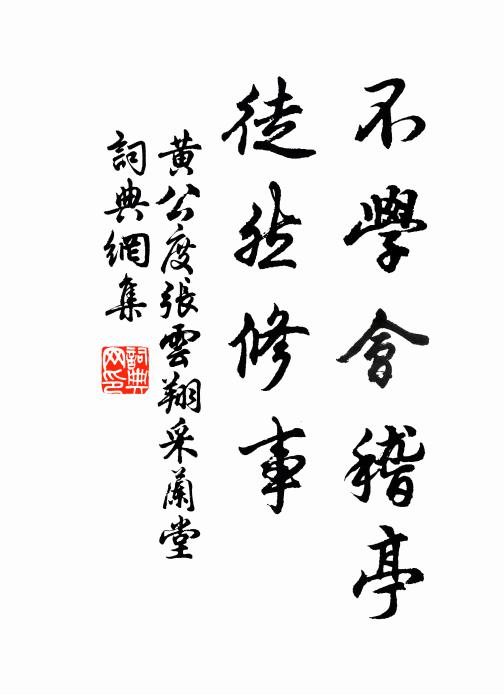 不學會稽亭
徒然修事
黃公度張雲翔采蘭堂
詞典網集
詞典网印